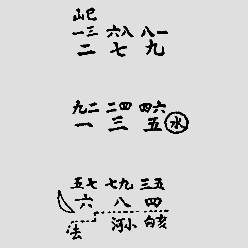 山巳
一三 六八 八一
二 七 九
九二 二四 四六
一 三 五 水
五七 七九 三五
六 八 四
法 河小 白亥